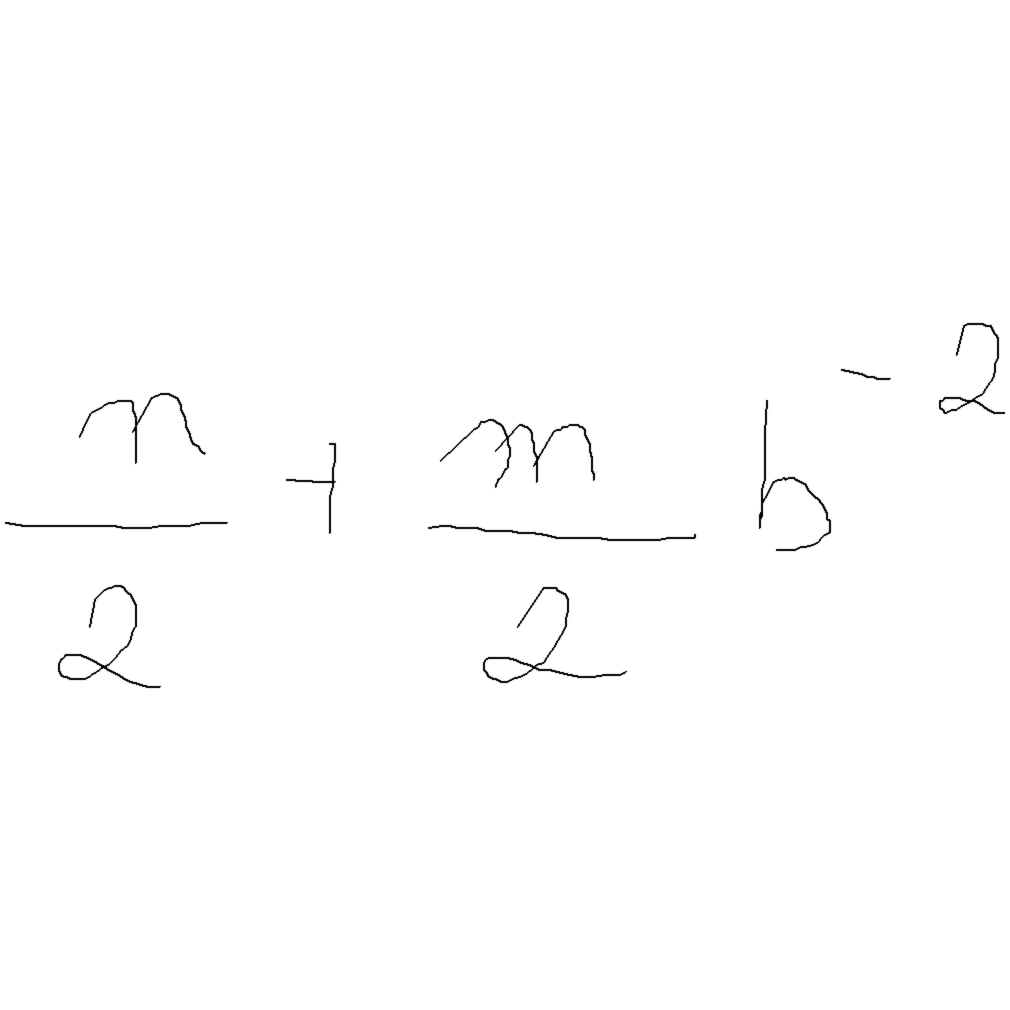 \frac{n}{2} + \frac{m}{2} b^{-2}